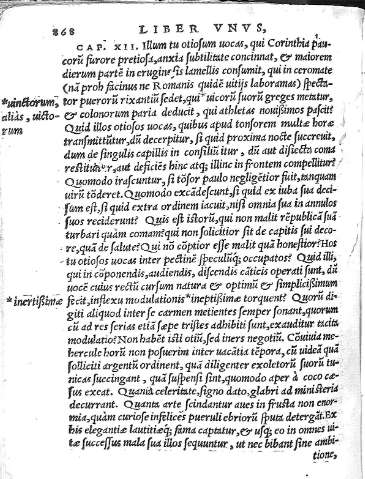 868 LIBER VNVS,
CAP. XII. Illum tu otiosum uocas, qui Corinthia pau-
corũ furore pretiosa, anxia subtilitate concinnat, & maiorem
dierum partẽ in eruginosis lamellis consumit, qui in ceromate
(nã proh facinus ne Romanis quidẽ uitijs laboramus) specta-
*uinctorum,
aliàs, uicto-
rum
tor puerorũ rixantiũ sedet, qui *uicorũ suorũ greges
& colonorum paria deducit, qui athletas nouissimos pascit?
Quid illos otiosos uocas, quibus apud tonsorem multæ horæ
transmittũtur, dũ decerpitur, si quid proxima nocte succreuit,
dum de singulis capillis in consiliũ itur, dũ aut disiecta coma
restituitur, aut deficiẽs hinc atq; illinc in frontem compellitur?
Quomodo irascuntur, si tõsor paulo negligẽtior fuit, tanquam
uirũ tõderet. Quomodo excãdescunt, si quid ex iuba sua deci-
sum est, si quid extra ordinem iacuit, nisi omnia in annulos
suos reciderunt? Quis est istorũ, qui non malit rẽpublicã suã
turbari quàm comam? qui non solicitior sit de capitis sui deco-
re, quã de salute? Qui nõ cõptior esse malit quã honestior? Hos
tu otiosos uocas inter pectinẽ speculũq; occupatos? Quid illi,
qui in cõponendis, audiendis, discendis cãticis operati sunt, dũ
uocẽ cuius rectũ cursum natura & optimũ & simplicissimum
*inertissimæ
fecit, inflexu modulationis *ineptissimæ torquent? Quorũ di-
giti aliquod inter se carmen metientes semper sonant, quorum
cũ ad res serias etiã sæpe tristes adhibiti sunt, exauditur tacita
modulatio? Non habẽt isti otiũ, sed iners negotiũ. Cõuiuia me-
hercule horũ non posuerim inter uacãtia tẽpora, cũ uideã quã
solliciti argentũ ordinent, quã diligenter exoletorũ suorũ tu-
nicas succingant, quã suspensi sint, quomodo aper à coco
sus exeat. Quanta celeritate, signo dato, glabri ad ministeria
decurrant. Quanta arte scindantur aues in frusta non enor-
mia, quàm curiose infelices pueruli ebriorũ sputa detergãt. Ex
his elegantiæ lautitiæq; fama captatur, & usq; eo in omnes ui-
tæ successus mala sua illos sequuntur, ut nec bibant sine ambi-
tione,